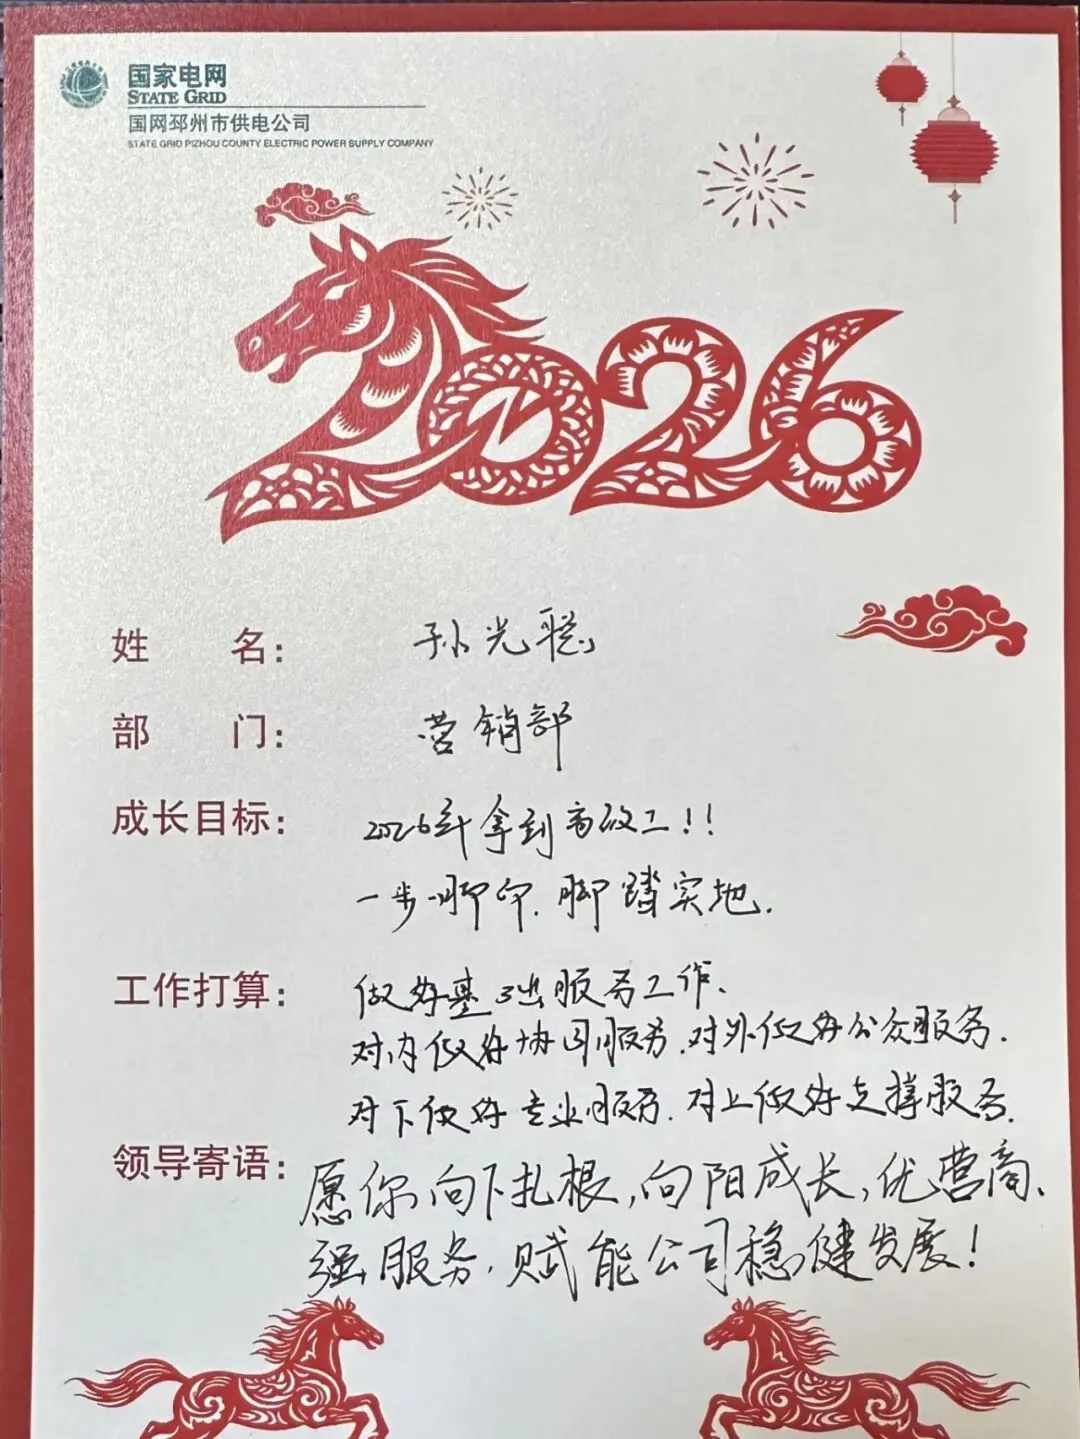 国家电网
STATE GRID
国网邳州市供电公司
STATE GRID PIZHOU COUNTY ELECTRIC POWER SUPPLY COMPANY
2026
姓 名: 孙光聪
部 门: 营销部
成长目标: 2026年拿到高级工!!
一步一脚印.脚踏实地.
工作打算: 做好基础服务工作、
对内做好协同服务.对外做好公众服务.
对下做好专业服务.对上做好支撑服务.
领导寄语: 愿你向下扎根,向阳成长,优营商、
强服务,赋能公司稳健发展!